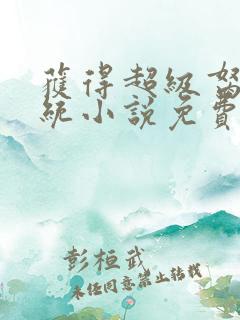 獲得超級
統小說免費
彭桓武
未经同意禁止转载